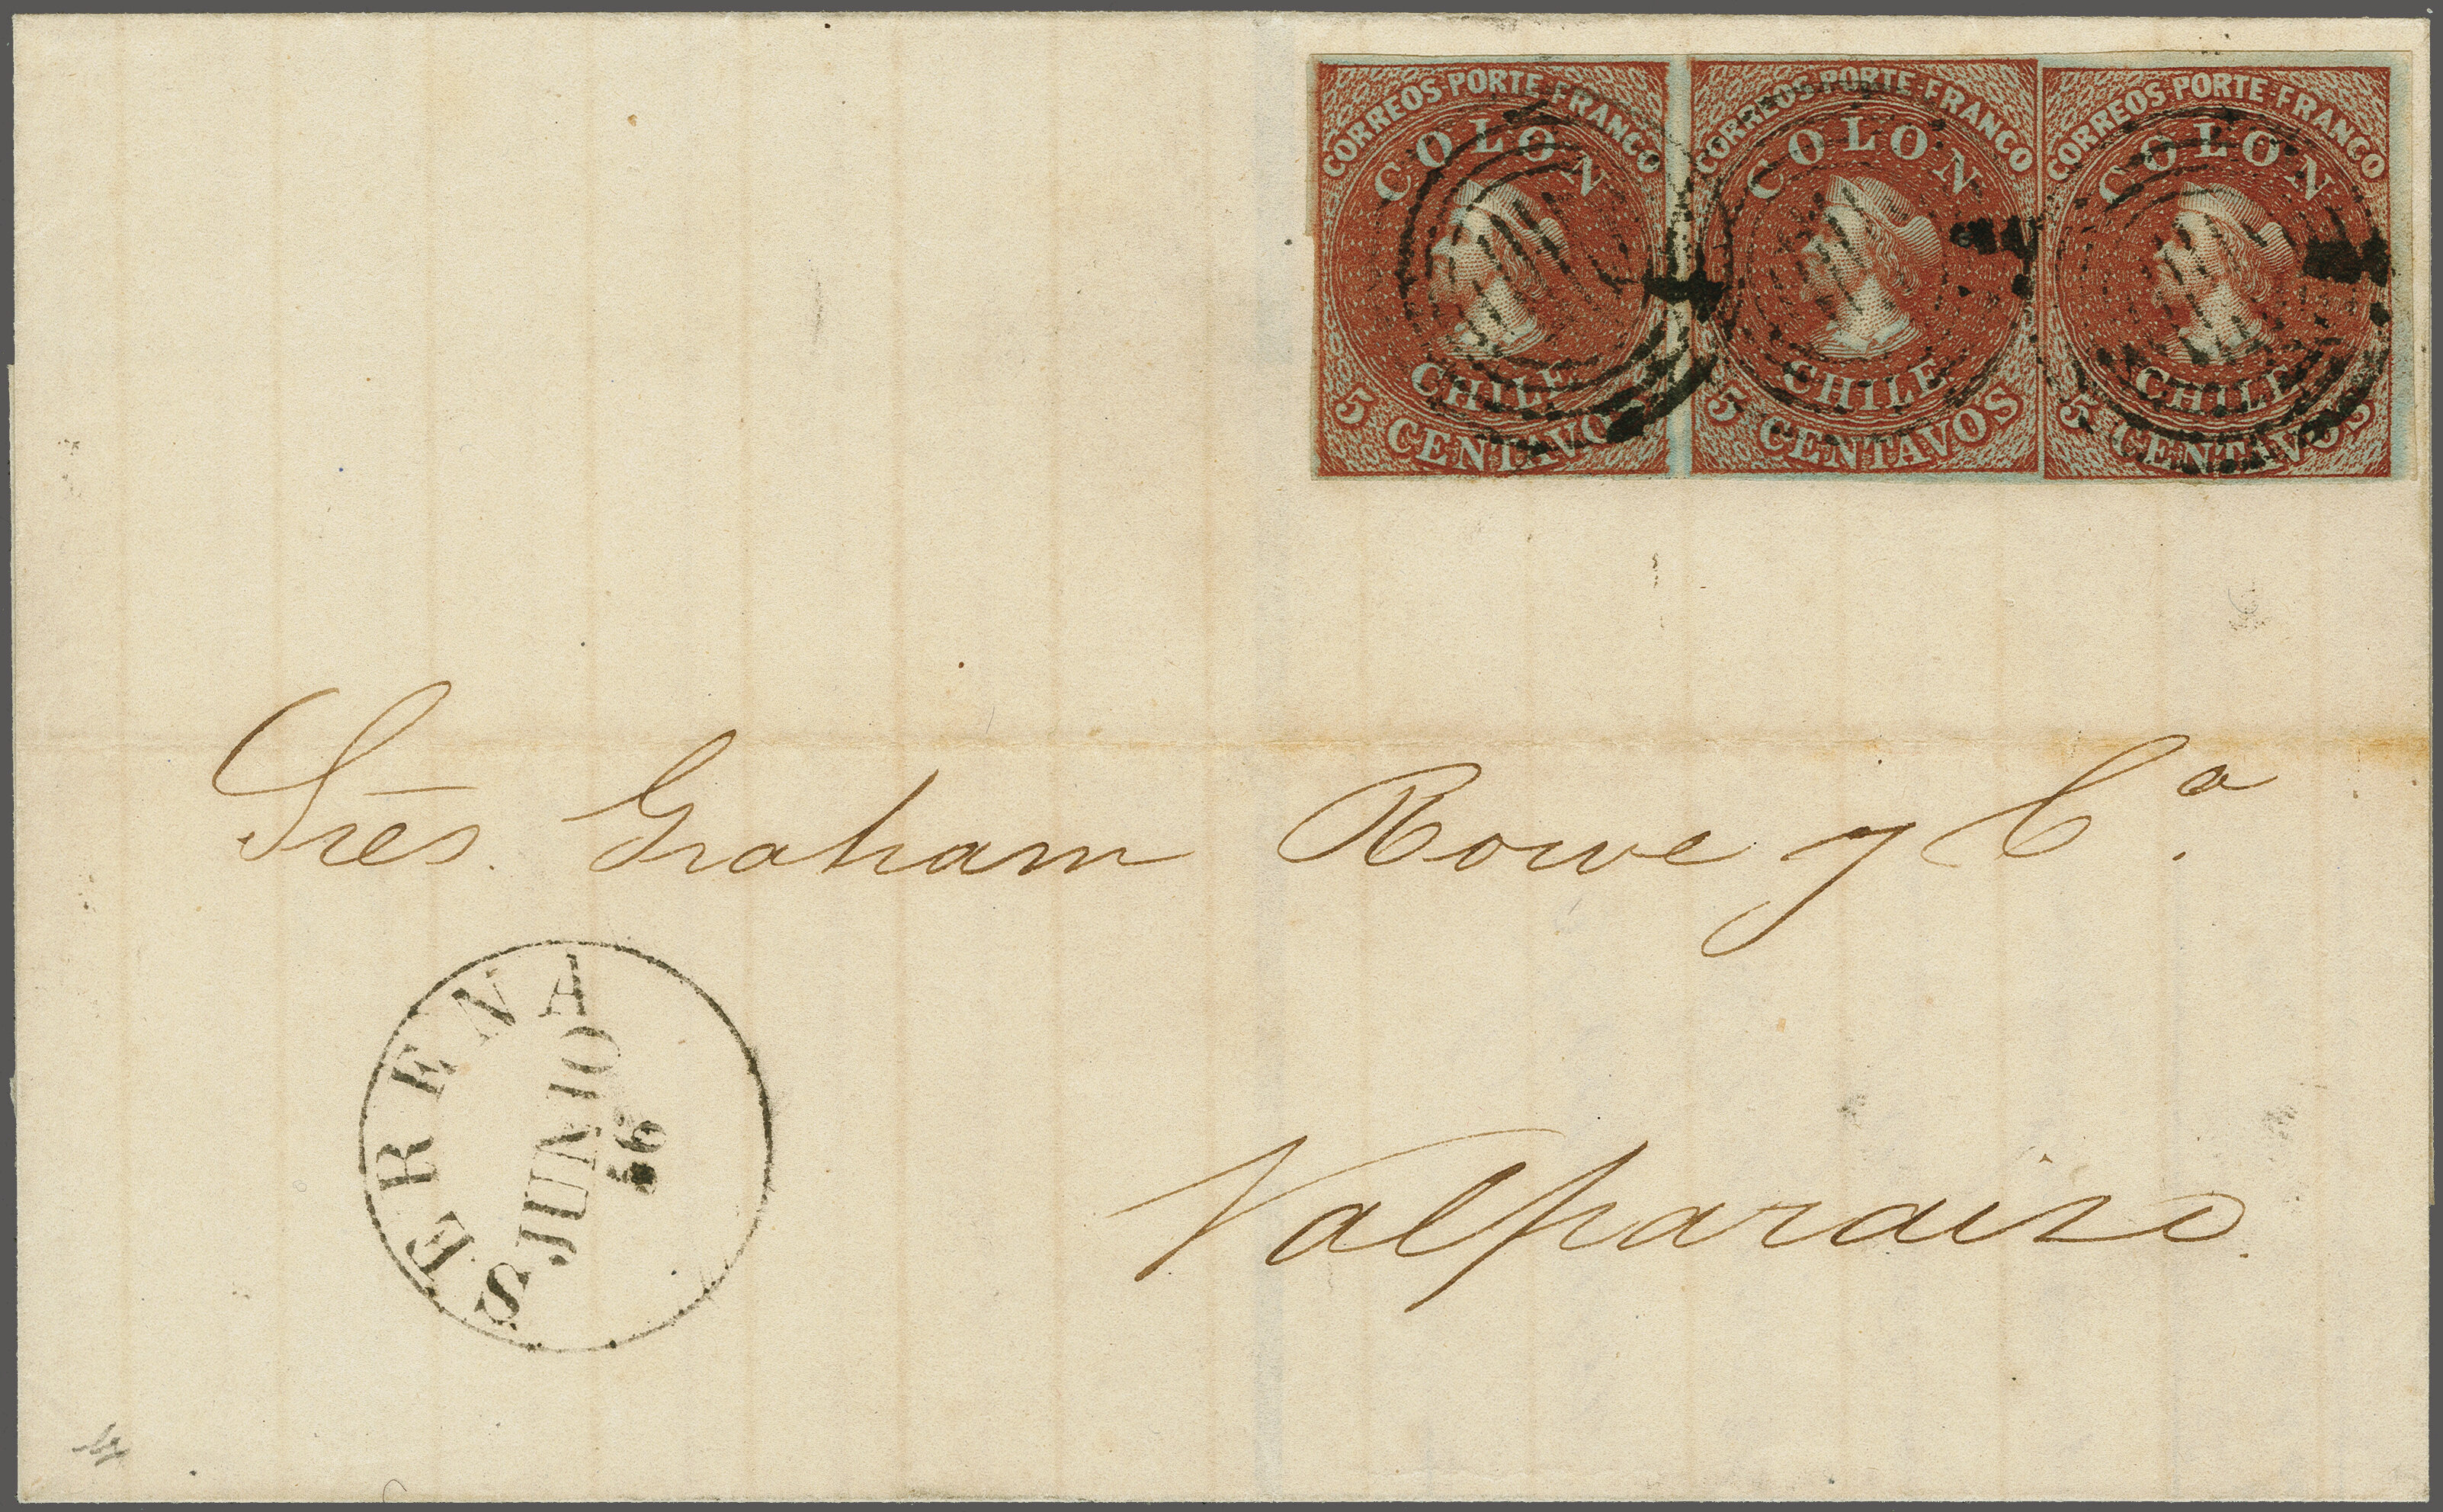 CORREOS PORTE FRANCO
COLON
CHILE
5 CENTAVOS
CORREOS PORTE FRANCO
COLON
CHILE
5 CENTAVOS
CORREOS PORTE FRANCO
COLON
CHILE
5 CENTAVOS
Sres. Graham Rowe y Cª.
SERENA
JUNIO
56
Valparaiso.